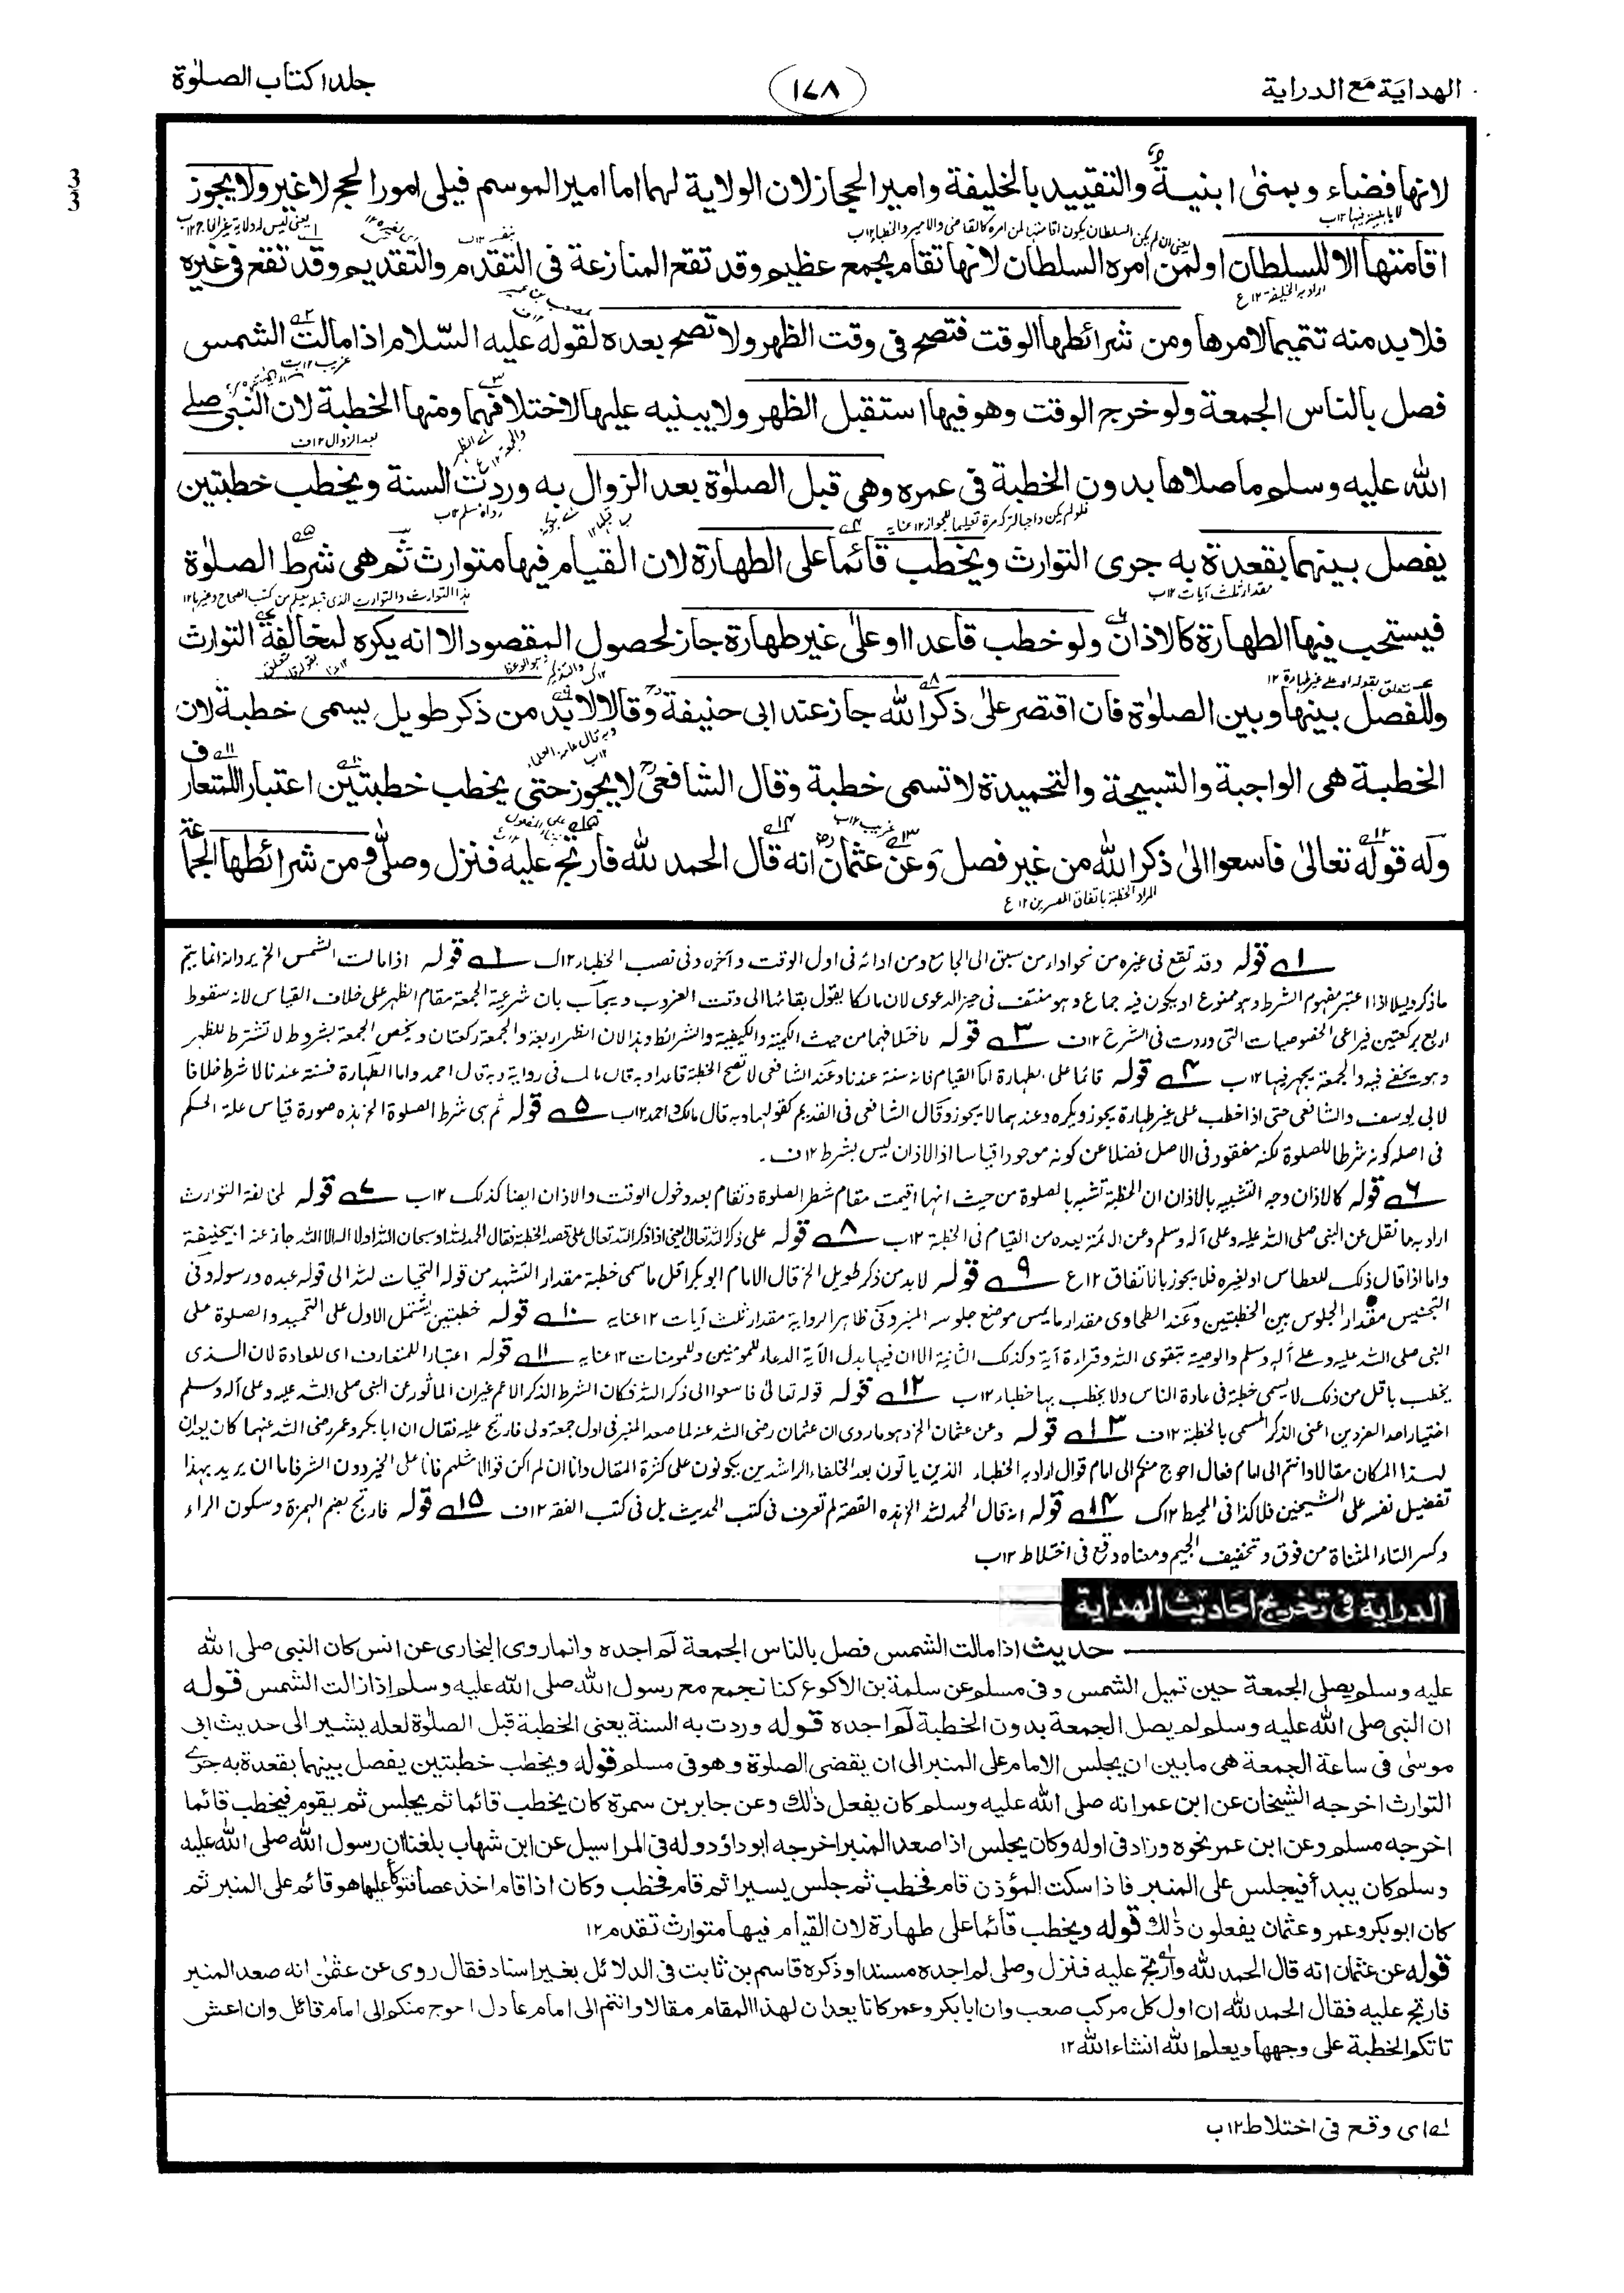 الهداية مع الدراية
١٤٨
جلد ١ كتاب الصلوٰة
لانها فضاء وبمنىٰ ابنيةٌ والتقييد بالخليفة وامير الحجاز لان الولاية لهما اما امير الموسم فيلى امور الحج لا غير ولا يجوز
اقامتها الا للسلطان او لمن امره السلطان لانها تقام بجمع عظيم وقد تقع المنازعة فى التقدم والتقديم وقد تقع فى غيره
فلا بد منه تتميما لامرها ومن شرائطها الوقت فتصح فى وقت الظهر ولا تصح بعده لقوله عليه السّلام اذا مالت الشمس
فصل بالناس الجمعة ولو خرج الوقت وهو فيها استقبل الظهر ولا يبنيه عليها لاختلافهما ومنها الخطبة لان النبى صلى
الله عليه وسلم ما صلاها بدون الخطبة فى عمره وهى قبل الصلوٰة بعد الزوال به وردت السنة ويخطب خطبتين
يفصل بينهما بقعدة به جرى التوارث ويخطب قائما على الطهارة لان القيام فيها متوارث ثم هى شرط الصلوٰة
فيستحب فيها الطهارة كالاذان ولو خطب قاعدا او علىٰ غير طهارة جاز لحصول المقصود الا انه يكره لمخالفة التوارث
وللفصل بينها وبين الصلوٰة فان اقتصر علىٰ ذكر الله جاز عند ابى حنيفة وقالا لا بد من ذكر طويل يسمى خطبة لان
الخطبة هى الواجبة والتسبيحة والتحميدة لا تسمى خطبة وقال الشافعى لا يجوز حتى يخطب خطبتين اعتبارا للمتعارف
وله قوله تعالىٰ فاسعوا الىٰ ذكر الله من غير فصل وعن عثمان انه قال الحمد لله فارتج عليه فنزل وصلى ومن شرائطها الجماعة
١ قوله وقد تقع فى غيره من نحو اداء من سبق الى الجامع ومن ادائه فى اول الوقت وآخره وفى نصب الخطباء ١٢ك ٢ قوله اذا مالت الشمس الخ يرد انه انما يتم
ما ذكر دليلا اذا اعتبر مفهوم الشرط وهو ممنوع او يكون فيه جماع وهو منتف فى حيز الدعوى لان مالكا يقول بقائها الى وقت الغروب ويجاب بان شرعية الجمعة مقام الظهر على خلاف القياس لانه سقوط
اربع بركعتين فيراعى الخصوصيات التى وردت فى الشرع ١٢ف ٣ قوله لاختلافهما من حيث الكمية والكيفية والشرائط وهذا لان الظهر اربعة والجمعة ركعتان ويخص الجمعة بشروط لا تشترط للظهر
وهو يخفى فيه والجمعة يجهر فيها ١٢ب ٤ قوله قائما على الطهارة اما القيام فانه سنة عندنا وعند الشافعى لا تصح الخطبة قاعدا وبه قال مالك فى رواية وبه قال احمد واما الطهارة فسنة عندنا لا شرط خلافا
لابى يوسف والشافعى حتى اذا خطب على غير طهارة يجوز ويكره وعندهما لا يجوز وقال الشافعى فى القديم كقولهما وبه قال مالك واحمد ١٢ب ٥ قوله ثم هى شرط الصلوة الخ هذه صورة قياس علة الحكم
فى اصله كونه شرطا للصلوة لكنه مفقود فى الاصل فضلا عن كونه موجودا قياسا اذ الاذان ليس بشرط ١٢ف.
٦ قوله كالاذان وجه التشبيه بالاذان ان الخطبة تشبه بالصلوة من حيث انها اقيمت مقام شطر الصلوة وتقام بعد دخول الوقت والاذان ايضا كذلك ١٢ب ٧ قوله لمخالفة التوارث
اراد به ما نقل عن النبى صلى الله عليه وعلى آله وسلم وعن الائمة بعده من القيام فى الخطبة ١٢ب ٨ قوله على ذكر الله تعالى يعنى اذا ذكر الله تعالى على قصد الخطبة فقال الحمد لله او سبحان الله او لا اله الا الله جاز عند ابيحنيفة
واما اذا قال ذلك للعطاس او لغيره فلا يجوز بالاتفاق ١٢ع ٩ قوله لا بد من ذكر طويل الخ قال الامام ابو بكر اقل ما سمى خطبة مقدار التشهد من قوله التحيات لله الى قوله عبده ورسوله وفى
التجنيس مقدار الجلوس بين الخطبتين وعند الطحاوى مقدار ما يمس موضع جلوسه المنبر وفى ظاهر الرواية مقدار ثلث آيات ١٢عنايه ١٠ قوله خطبتين يشتمل الاول على التحميد والصلوة على
النبى صلى الله عليه وعلى آله وسلم والوصية بتقوى الله وقراءة آية وكذلك الثانية الا ان فيها بدل الآية الدعاء للمومنين وللمومنات ١٢عنايه ١١ قوله اعتبارا للمتعارف اى للعادة لان الذى
يخطب باقل من ذلك لا يسمى خطبة فى عادة الناس ولا يخطب بها خطباء ١٢ب ١٢ قوله قوله تعالىٰ فاسعوا الى ذكر الله فكان الشرط الذكر الاعم غير ان الماثور عن النبى صلى الله عليه وعلى آله وسلم
اختيار احد الفردين اعنى الذكر المسمى بالخطبة ١٢ف ١٣ قوله وعن عثمان الخ وهو ما روى ان عثمان رضى الله عنه لما صعد المنبر فى اول جمعة ولى فارتج عليه فقال ان ابا بكر وعمر رضى الله عنهما كان يعدان
لهذا المكان مقالا وانتم الى امام فعال احوج منكم الى امام قوال اراد به الخطباء الذين ياتون بعد الخلفاء الراشدين يكونون على كثرة المقال وانا ان لم اكن قوالا مثلهم فانا على الخير دون الشر فاما ان يريد بهذا
تفضيل نفسه على الشيخين فلا كذا فى المحيط ١٢ك ١٤ قوله انه قال الحمد لله الخ هذه القصة لم تعرف فى كتب الحديث بل فى كتب الفقه ١٢ف ١٥ قوله فارتج بضم الهمزة وسكون الراء
وكسر التاء المثناة من فوق وتخفيف الجيم ومعناه وقع فى اختلاط ١٢ب
الدراية فى تخريج احاديث الهداية
حديث اذا مالت الشمس فصل بالناس الجمعة لم اجده وانما روى البخارى عن انس كان النبى صلى الله
عليه وسلم يصلى الجمعة حين تميل الشمس وفى مسلم عن سلمة بن الاكوع كنا نجمع مع رسول الله صلى الله عليه وسلم اذا زالت الشمس قوله
ان النبى صلى الله عليه وسلم لم يصل الجمعة بدون الخطبة لم اجده قوله وردت به السنة يعنى الخطبة قبل الصلوٰة لعله يشير الى حديث ابى
موسىٰ فى ساعة الجمعة هى ما بين ان يجلس الامام على المنبر الى ان يقضى الصلوة وهو فى مسلم قوله ويخطب خطبتين يفصل بينهما بقعدة به جرى
التوارث اخرجه الشيخان عن ابن عمر انه صلى الله عليه وسلم كان يفعل ذلك وعن جابر بن سمرة كان يخطب قائما ثم يجلس ثم يقوم فيخطب قائما
اخرجه مسلم وعن ابن عمر نحوه وزاد فى اوله وكان يجلس اذا صعد المنبر اخرجه ابو داؤد وله فى المراسيل عن ابن شهاب بلغنا ان رسول الله صلى الله عليه
وسلم كان يبدأ فيجلس على المنبر فاذا سكت المؤذن قام فخطب ثم جلس يسيرا ثم قام فخطب وكان اذا قام اخذ عصا فتوكأ عليها هو قائم على المنبر ثم
كان ابو بكر وعمر وعثمان يفعلون ذلك قوله ويخطب قائما على طهارة لان القيام فيها متوارث تقدم ١٢
قوله عن عثمان انه قال الحمد لله وارتج عليه فنزل وصلى لم اجده مسندا وذكره قاسم بن ثابت فى الدلائل بغير اسناد فقال روى عن عثمٰن انه صعد المنبر
فارتج عليه فقال الحمد لله ان اول كل مركب صعب وان ابا بكر وعمر كانا يعدان لهذا المقام مقالا وانتم الى امام عادل احوج منكم الى امام قائل وان اعش
تاتكم الخطبة على وجهها ويعلم الله انشاء الله ١٢
لـه اى وقع فى اختلاط ١٢ب